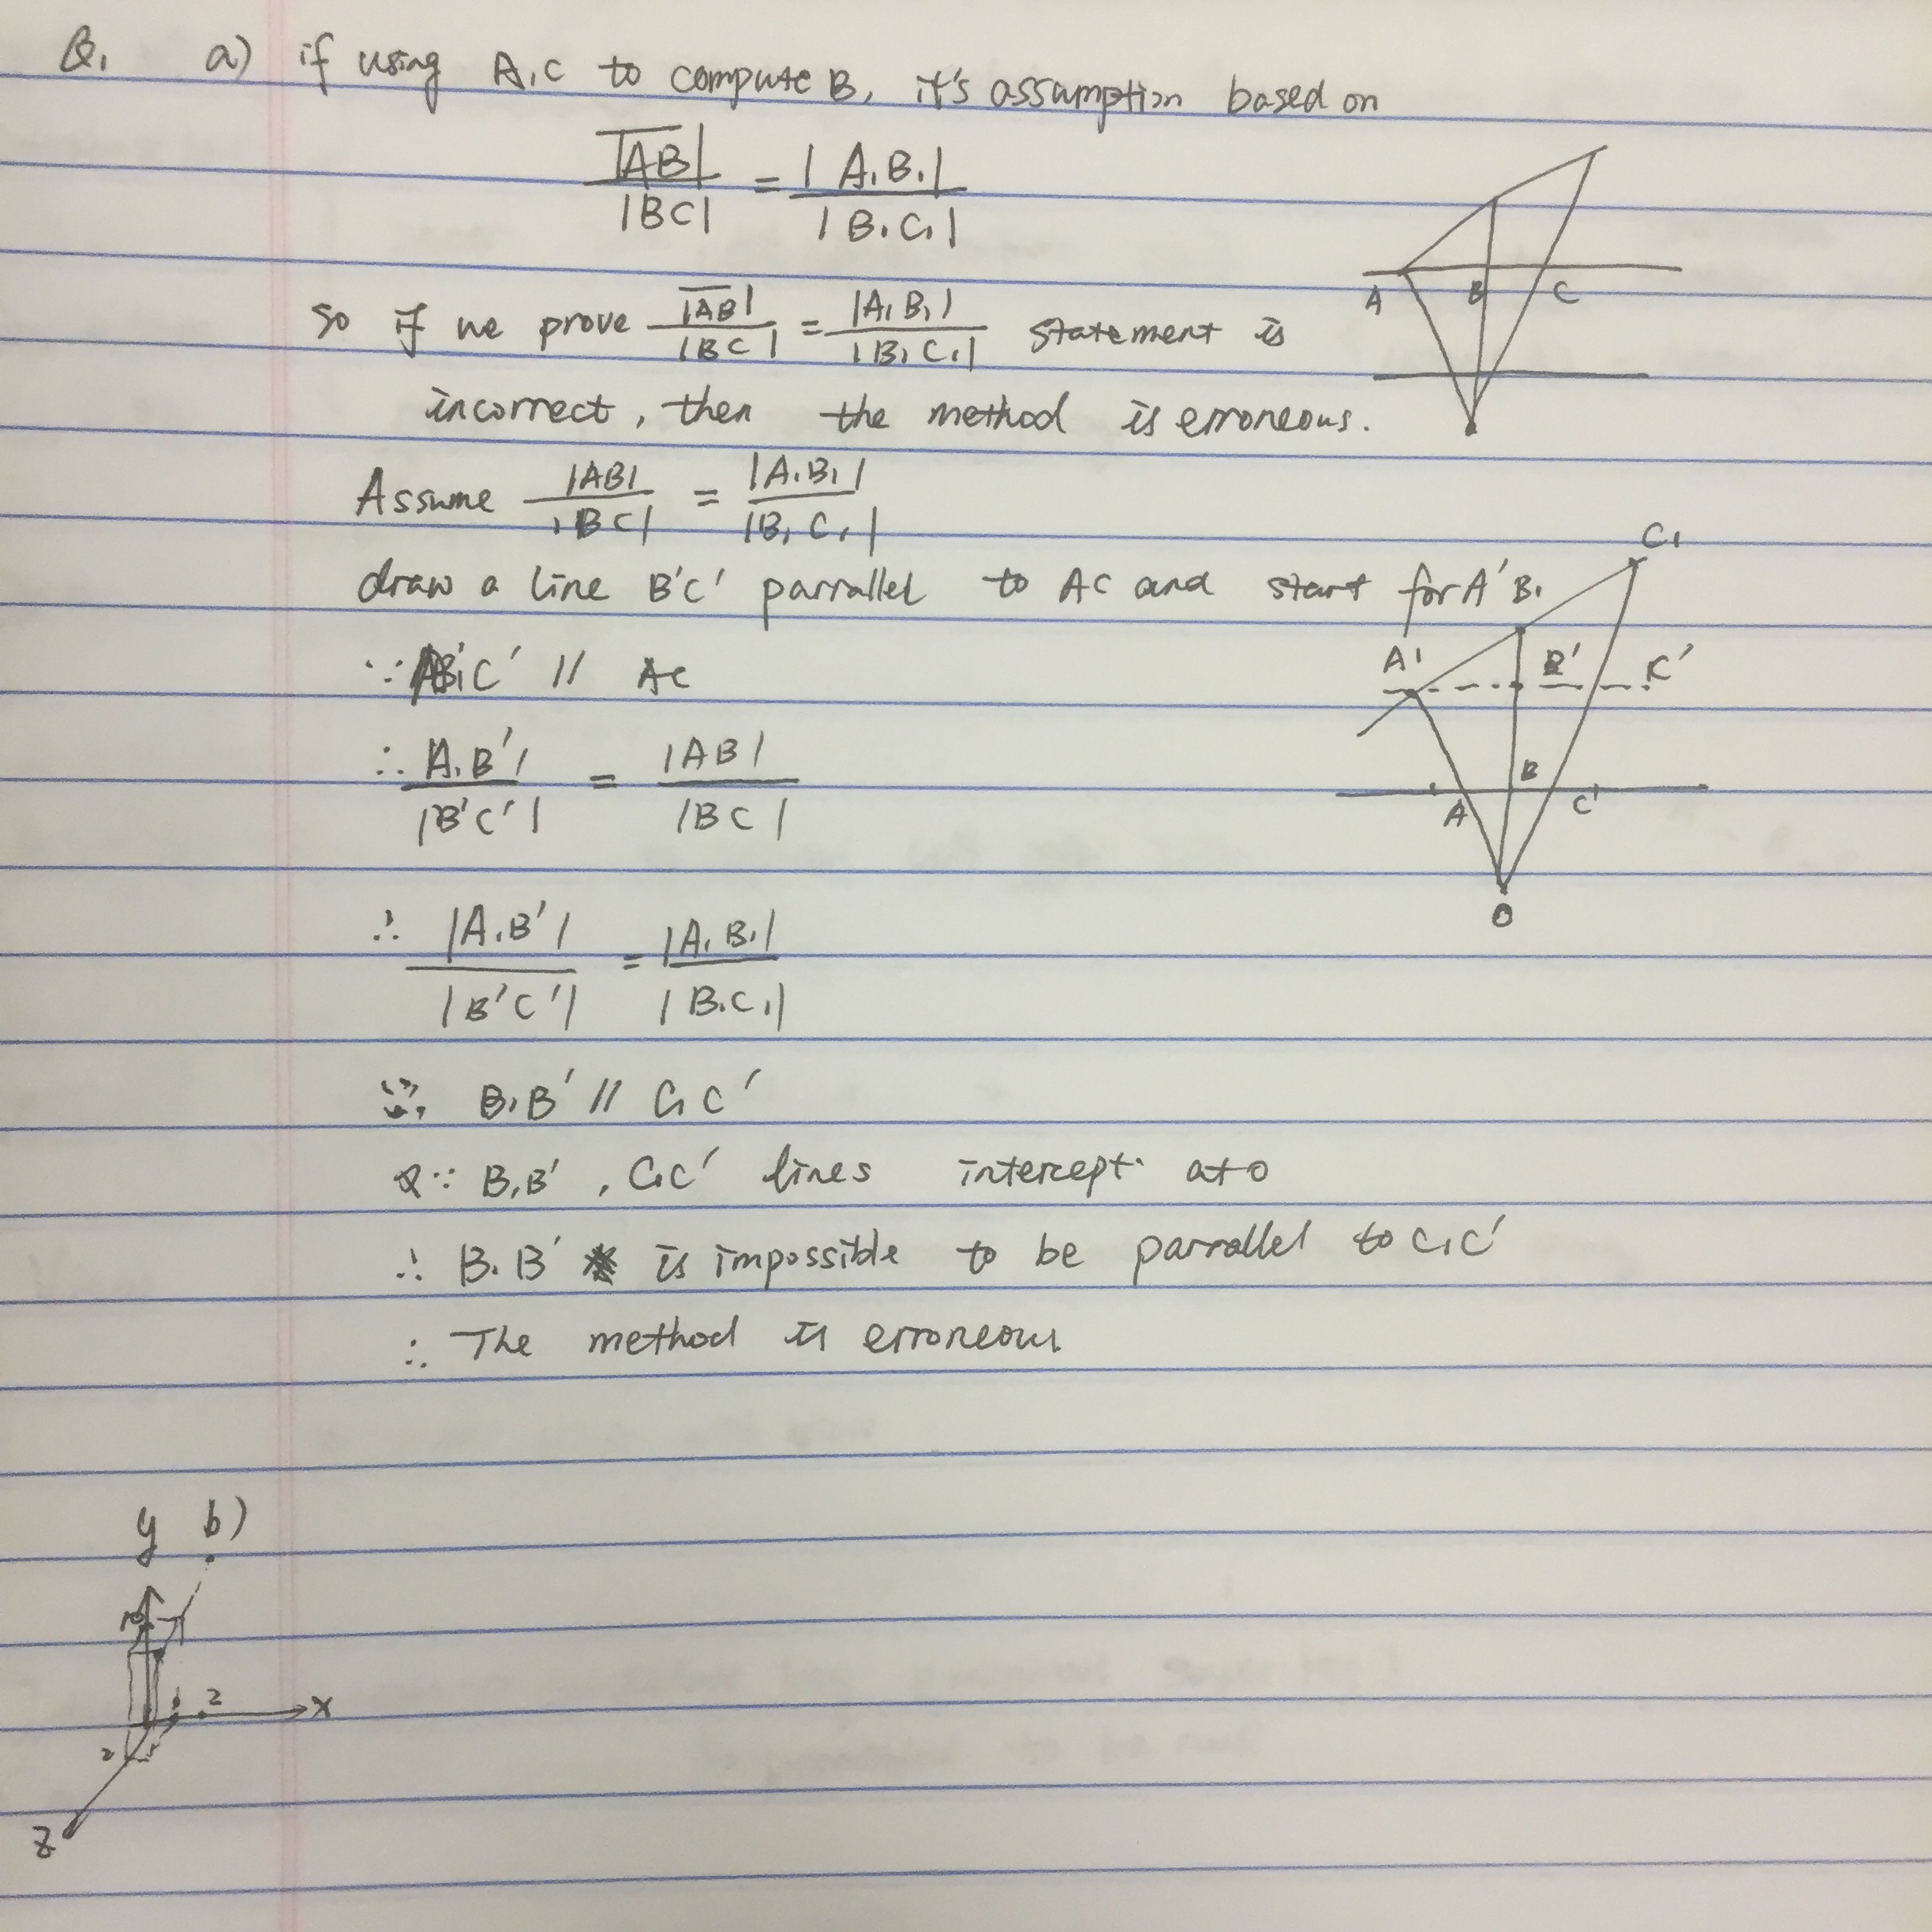 Q1 a) if using A,C to compute B, it's assumption based on
|AB| / |BC| = |A1B1| / |B1C1|
A B C
so if we prove |AB| / |BC| = |A1B1| / |B1C1| statement is
incorrect, then the method is erroneous.
Assume |AB| / |BC| = |A1B1| / |B1C1|
C1
draw a line B'C' parrallel to AC and start for A' B1
∵ C' // AC
A1 B' C'
∴ A1B'| / |B'C'| = |AB| / |BC|
A B C'
O
∴ |A1B'| / |B'C'| = |A1B1| / |B1C1|
∴ B1B' // C1C'
∵ B1B', C1C' lines intercept at O
∴ B1B' is impossible to be parrallel to C1C'
∴ The method is erroneous
y b)
1 2 x
2
z